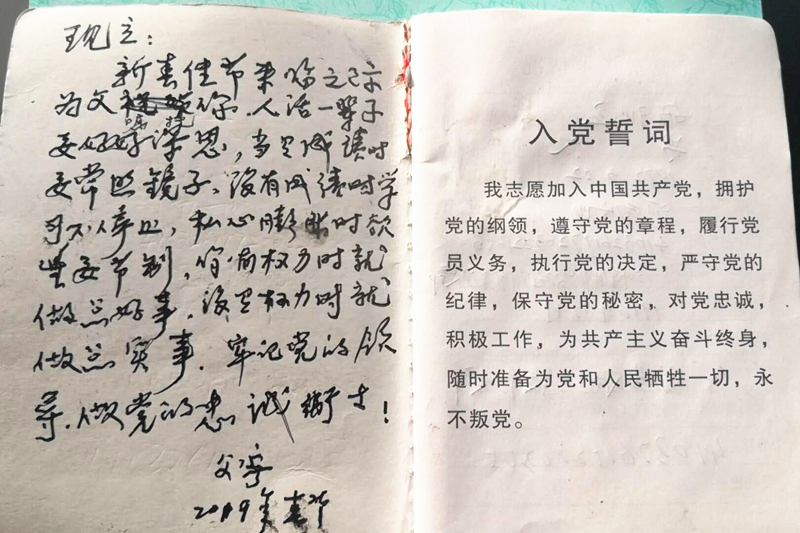 现立：
新春佳节来临之际
为父提你，人活一辈子
嘱
要好好深思，当是成绩时
要常照镜子，没有成绩时学
习不停止，私心膨胀时欲
望要节制，你有权力时就
做点好事，没是权力时就
做点实事．牢记党的领
导．做党的忠诚衛士！
父字
2019年春节
入党誓词
我志愿加入中国共产党，拥护
党的纲领，遵守党的章程，履行党
员义务，执行党的决定，严守党的
纪律，保守党的秘密，对党忠诚，
积极工作，为共产主义奋斗终身，
随时准备为党和人民牺牲一切，永
不叛党。